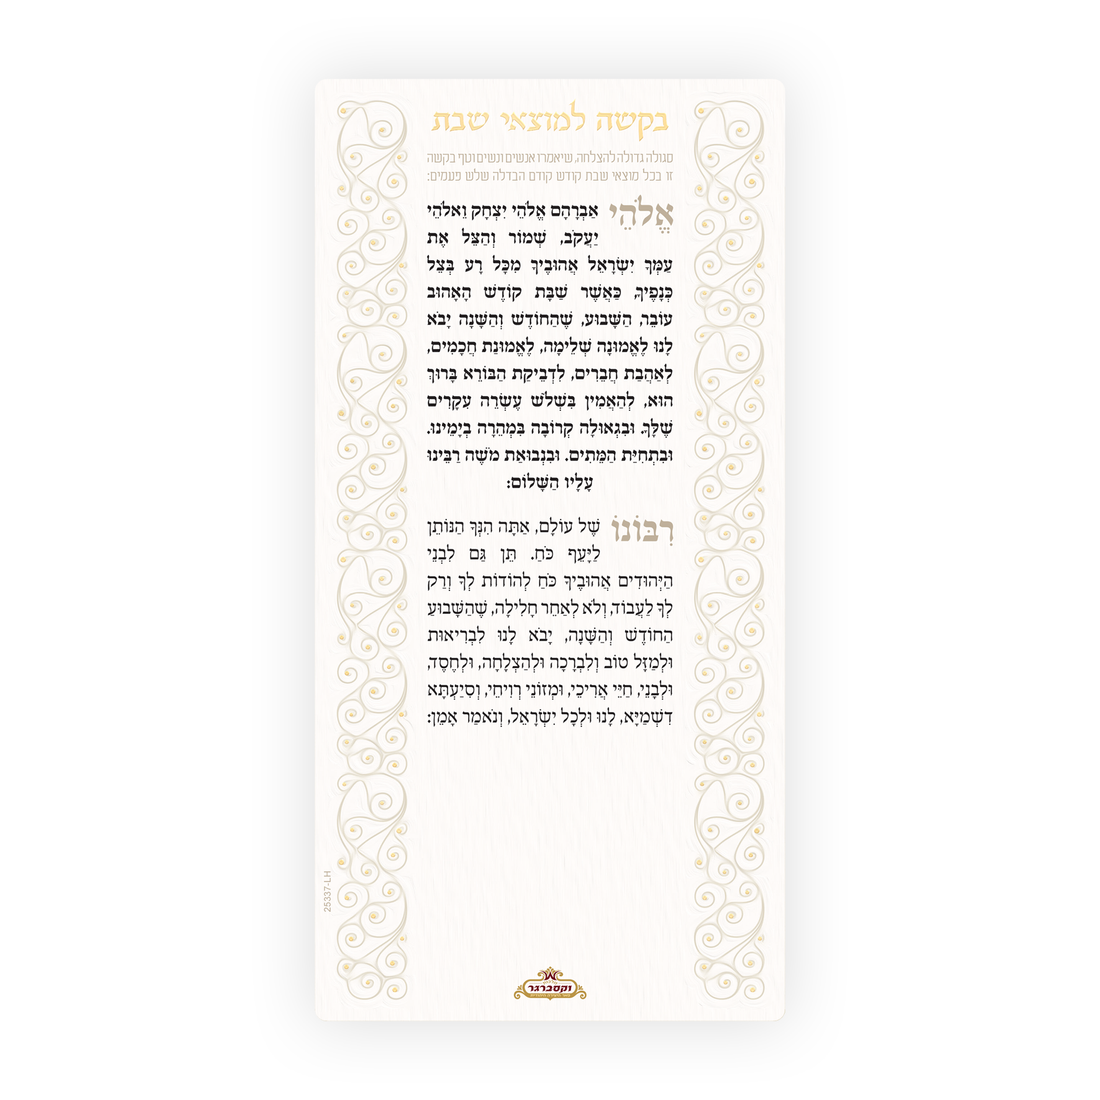 בקשה למוצאי שבת
סגולה גדולה להצלחה, שיאמרו אנשים ונשים וטף בקשה
זו בכל מוצאי שבת קודש קודם הבדלה שלש פעמים:
אֱלֹהֵי אַבְרָהָם אֱלֹהֵי יִצְחָק וֵאלֹהֵי
יַעֲקֹב, שְׁמוֹר וְהַצֵּל אֶת
עַמְּךָ יִשְׂרָאֵל אֲהוּבֶיךָ מִכָּל רָע בְּצֵל
כְּנָפֶיךָ, כַּאֲשֶׁר שַׁבָּת קוֹדֶשׁ הָאָהוּב
עוֹבֵר, הַשָּׁבוּעַ, שֶׁהַחוֹדֶשׁ וְהַשָּׁנָה יָבֹא
לָנוּ לֶאֱמוּנָה שְׁלֵימָה, לֶאֱמוּנַת חֲכָמִים,
לְאַהֲבַת חֲבֵרִים, לִדְבֵיקַת הַבּוֹרֵא בָּרוּךְ
הוּא, לְהַאֲמִין בִּשְׁלֹשׁ עֶשְׂרֵה עִקָרִים
שֶׁלָּךְ. וּבִגְאוּלָה קְרוֹבָה בִּמְהֵרָה בְיָמֵינוּ.
וּבִתְחִיַּת הַמֵּתִים. וּבִנְבוּאַת מֹשֶׁה רַבֵּינוּ
עָלָיו הַשָּׁלוֹם:
רִבּוֹנוֹ שֶׁל עוֹלָם, אַתָּה הִנְּךָ הַנּוֹתֵן
לַיָּעֵף כֹּחַ. תֵּן גַּם לִבְנֵי
הַיְּהוּדִים אֲהוּבֶיךָ כֹּחַ לְהוֹדוֹת לְךָ וְרַק
לְךָ לַעֲבוֹד, וְלֹא לְאַחֵר חָלִילָה, שֶׁהַשָּׁבוּעַ
הַחוֹדֶשׁ וְהַשָּׁנָה, יָבֹא לָנוּ לִבְרִיאוּת
וּלְמַזָּל טוֹב וְלִבְרָכָה וּלְהַצְלָחָה, וּלְחֶסֶד,
וּלְבָנֵי, חַיֵּי אֲרִיכֵי, וּמְזוֹנֵי רְוִיחֵי, וְסִיַּעְתָּא
דִשְׁמַיָּא, לָנוּ וּלְכָל יִשְׂרָאֵל, וְנֹאמַר אָמֵן:
25337-LH
וקסברגר